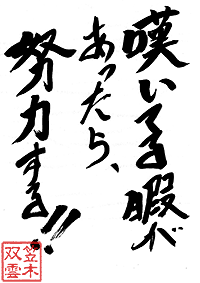 嘆いてる暇が
あったら、
努力する!!
笠木
双雲